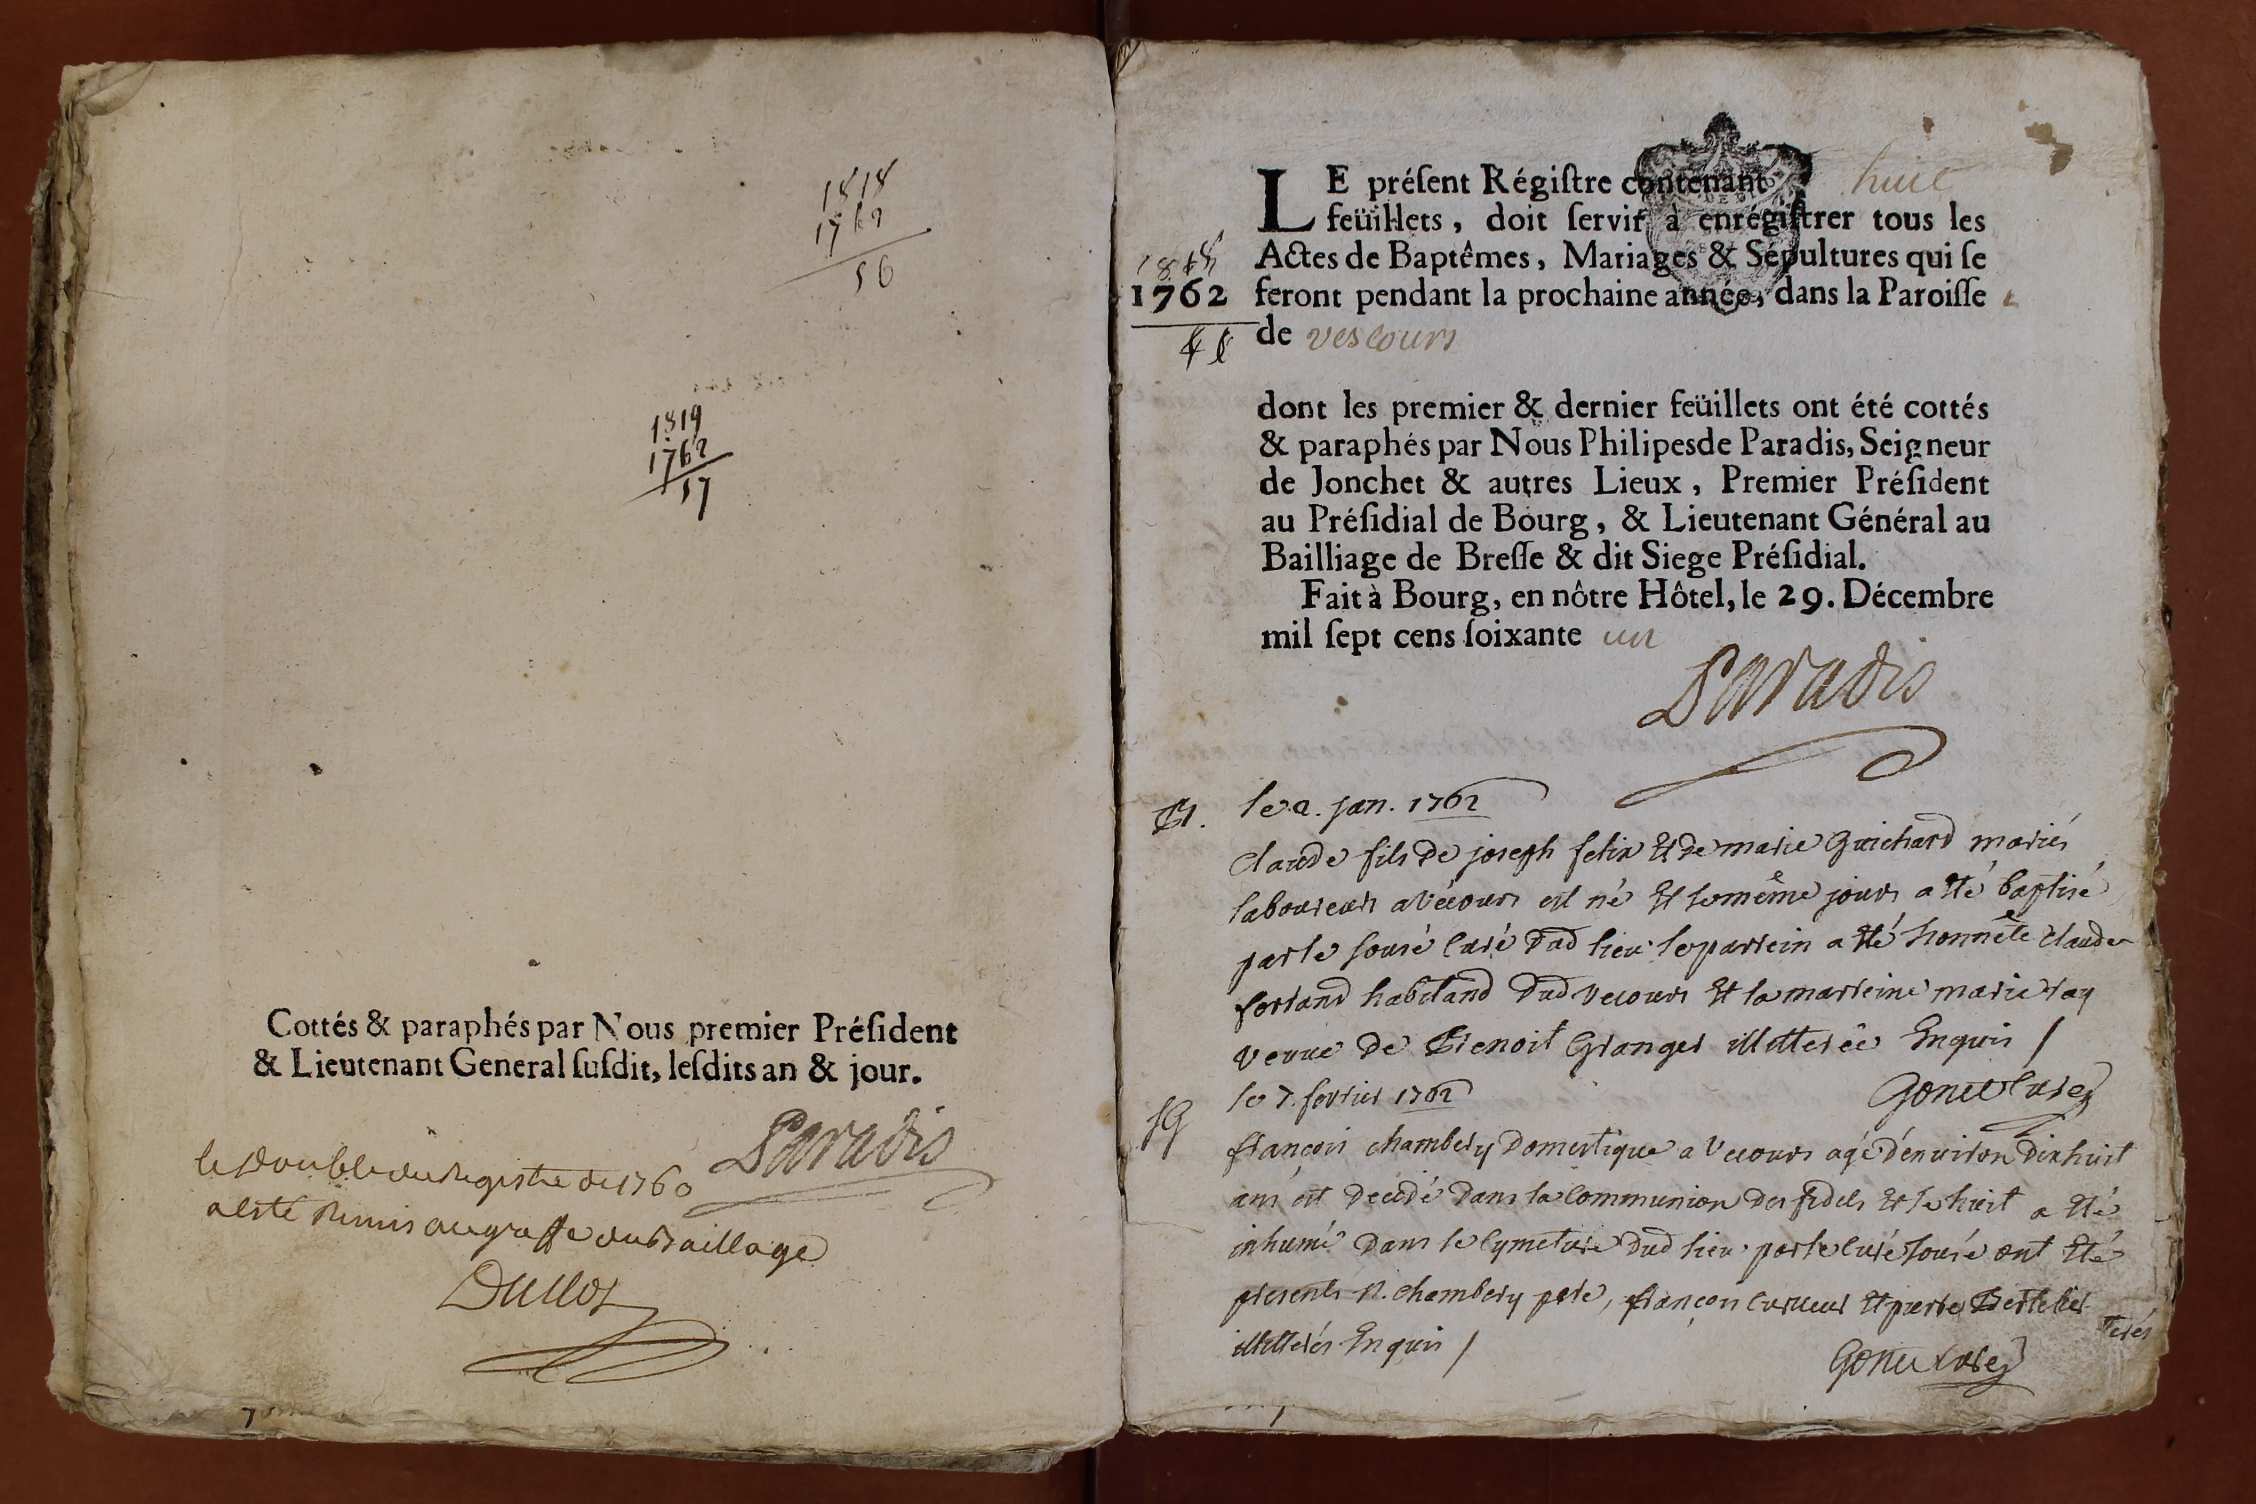 1818
1762
56
1819
1762
57
Cottés & paraphés par Nous premier Préſident
& Lieutenant General ſuſdit, leſdits an & jour.
Paradis
le double du Registre de 1760
a esté Remis au greffe du Baillage
1818
1762
LE préſent Régiſtre contenant huit
feüillets, doit ſervir à enrégiſtrer tous les
Actes de Baptêmes, Mariages & Sépultures qui ſe
feront pendant la prochaine année, dans la Paroiſſe
de vescours
dont les premier & dernier feüillets ont été cottés
& paraphés par Nous Philipes de Paradis, Seigneur
de Jonchet & autres Lieux, Premier Préſident
au Préſidial de Bourg, & Lieutenant Général au
Bailliage de Breſſe & dit Siege Préſidial.
Fait à Bourg, en nôtre Hôtel, le 29. Décembre
mil ſept cens ſoixante un
Paradis
B. le 2. jan. 1762
Claude fils de joseph felix Et de marie Guichard mariés
laboureurs a Vécours est né Et le même jours a Eté baptisé
par le sousé Curé dud lieu le parrein a Eté honnête Claude
ferland habitand dud vecours Et la marreine marie ray
veuve de Benoit Granger illetterée Enquis /
Gonet Curé
le 7. fevrier 1762
SG
françois chambery Domestique a Vecours agé d'environ dixhuit
ans est decedé dans la Communion des fidels Et le huit a Eté
inhumé dans le Cymetiere dud lieu par le Curé sousé ont Eté
presents N. Chambery pere, françois Curveur Et pierre Bertelier
illetterés Enquis /
Gonet Curé